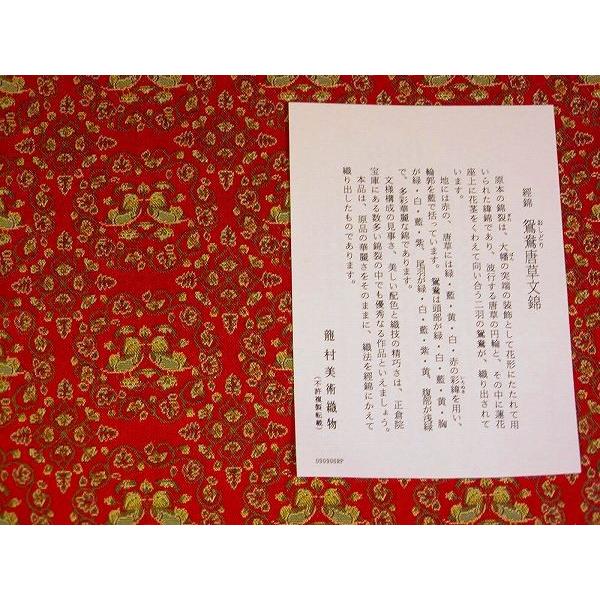 經錦 鴛鴦唐草文錦
おしどり
原本の錦裂は、大幡の
ばん
端の装飾として花形にたたれて用
いられた緯錦であり、波行する唐草の円輪と、その中に蓮花
座上に花茎をくわえて向い合う二羽の鴛鴦が、織り出されて
います。
地には赤の、唐草には緑・藍・黄・白・赤の彩緯を用い、
輪郭を藍で括っています。鴛鴦は頭部が緑・白・藍・黄・胸
が緑・白・藍・紫、尾羽が緑・白・藍・紫・黄、腹部が浅緑
で、多彩華麗な錦であります。
文様構成の見事さ、美しい配色と織技の精巧さは、正倉院
宝庫にある数多い錦裂の中でも優秀なる作品といえましょう。
本品は、原品の華麗さをそのままに、織法を經錦にかえて
織り出したものであります。
龍村美術織物
（不許複製転載）
090906RP